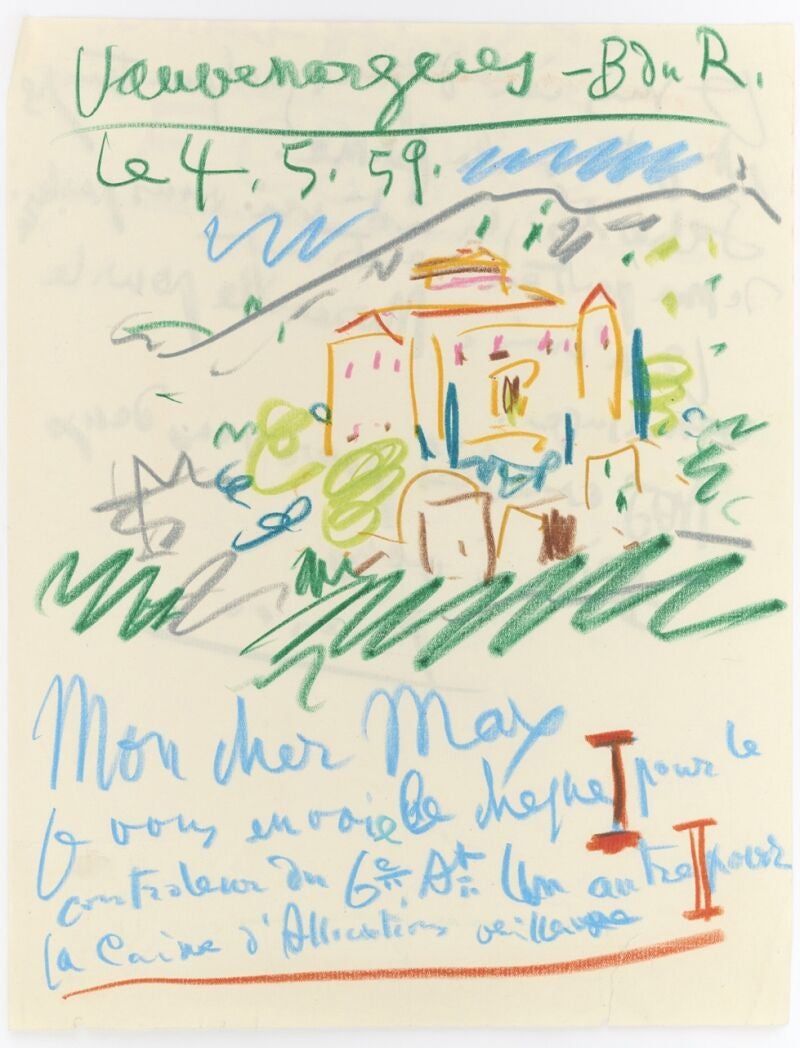 Vauvenargues – B du R.
le 4. 5. 59.
Mon cher Max
Je vous envoie le cheque I pour le
controleur du 6e At. Un autre pour II
la Caisse d'Allocations vieillesse